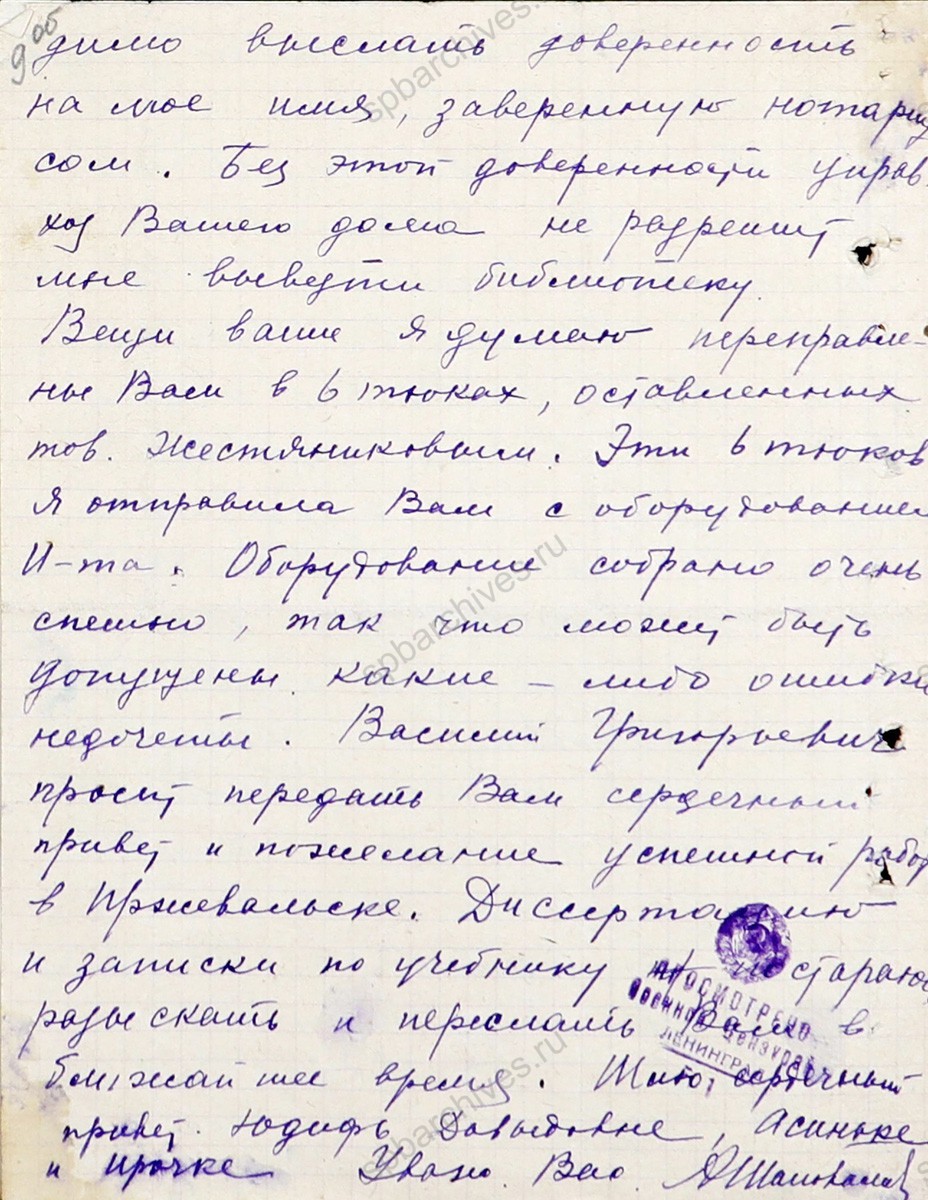 9 об
димо выслать доверенность
на мое имя, заверенную нотариу
сом. Без этой доверенности управ-
хоз Вашего дома не разрешит
мне вывезти библиотеку.
Вещи ваши я думаю переправле-
ны Вам в 6 тюках, оставленных
тов. Жестяниковым. Эти 6 тюков
я отправила Вам с оборудованием
И-та. Оборудование собрано очень
спешно, так что могут быть
допущены какие-либо ошибки
недочеты. Василий Григорьевич
просит передать Вам сердечный
привет и пожелание успешной работ
в Пржевальске. Диссертацию
и записки по учебнику стараюсь
разыскать и переслать Вам в
ближайшее время. Шлю сердечный
привет Юдифь Давыдовне, Асиньке
и Ирочке Уваж. Вас
ПРОСМОТРЕНО
Военной Цензурой
ЛЕНИНГРАД
spbarchives.ru
spbarchives.ru
spbarchives.ru